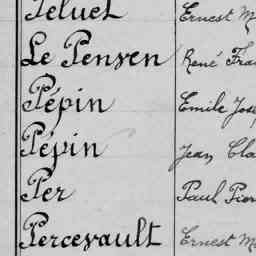 Peluet Ernest M
Le Pensen René Fra
Pépin Emile Jose
Pépin Jean Cla
Per Paul Pier
Percevault Ernest Ma